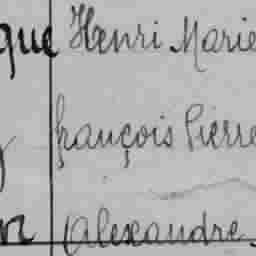 que Henri Marie
françois Pierre
Alexandre